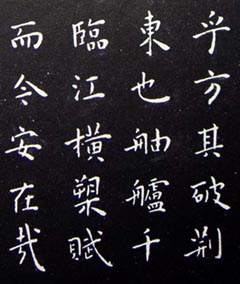 乎方其破荆
東也舳艫千
臨江横槊賦
而今安在哉